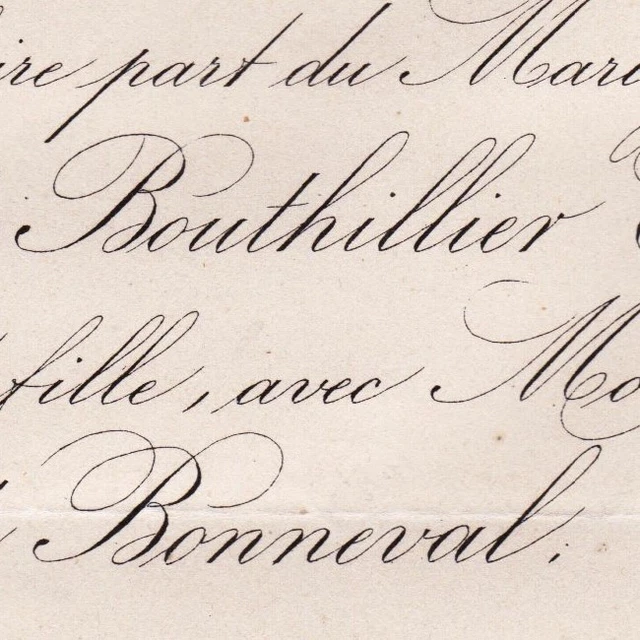 ire part du Mari
Bouthillier
fille, avec Mo
Bonneval.